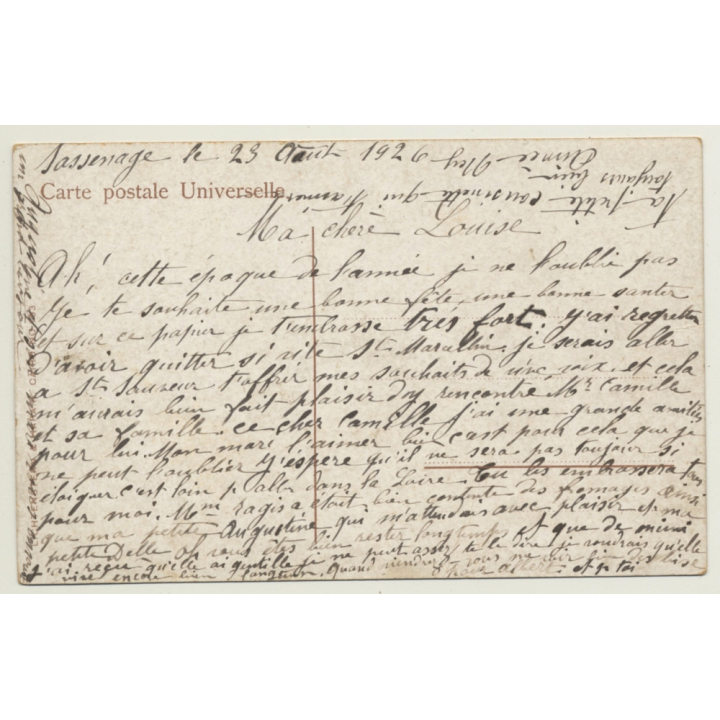 Sassenage le 23 Août 1926
Carte postale Universelle
Ma chère Louise
Ah! cette époque de l'année je ne l'oublie pas
Je te souhaite une bonne fête, une bonne santer
et sur ce papier je t'embrasse très fort. j'ai regretter
D'avoir quitter si aite St Marallin. je serais aller
a St Sauveur t'offrir mes souhaits de vive voix. et cela
m'aurais bien fait plaisir d'y rencontre Mr Camille
et sa famille. ce cher Camille j'ai une grande amitier
pour lui. Mon mari l'aimer bien c'est pour cela que je
ne peut l'oublier j'éspère qu'il ne sera pas toujour si
éloiguer c'est loin p. aller dans la Loire. Tu les embrassera tres
pour moi. Mme ragis a était bien contente des fromages ainsi
que ma petite Augustine qui m'attendais avec plaisir et ma
petite Delle ah vous êtes bien rester longtemps et que de mimi
j'ai reçu qu'elle ai gentille je ne peut assez te le dire je voudrais qu'elle
vive encore bien longtemps. Quand viendrez vous me voir bien
pour et p. toi
Ta petite cousinette qui t'aimes
toujours bien
Aimée